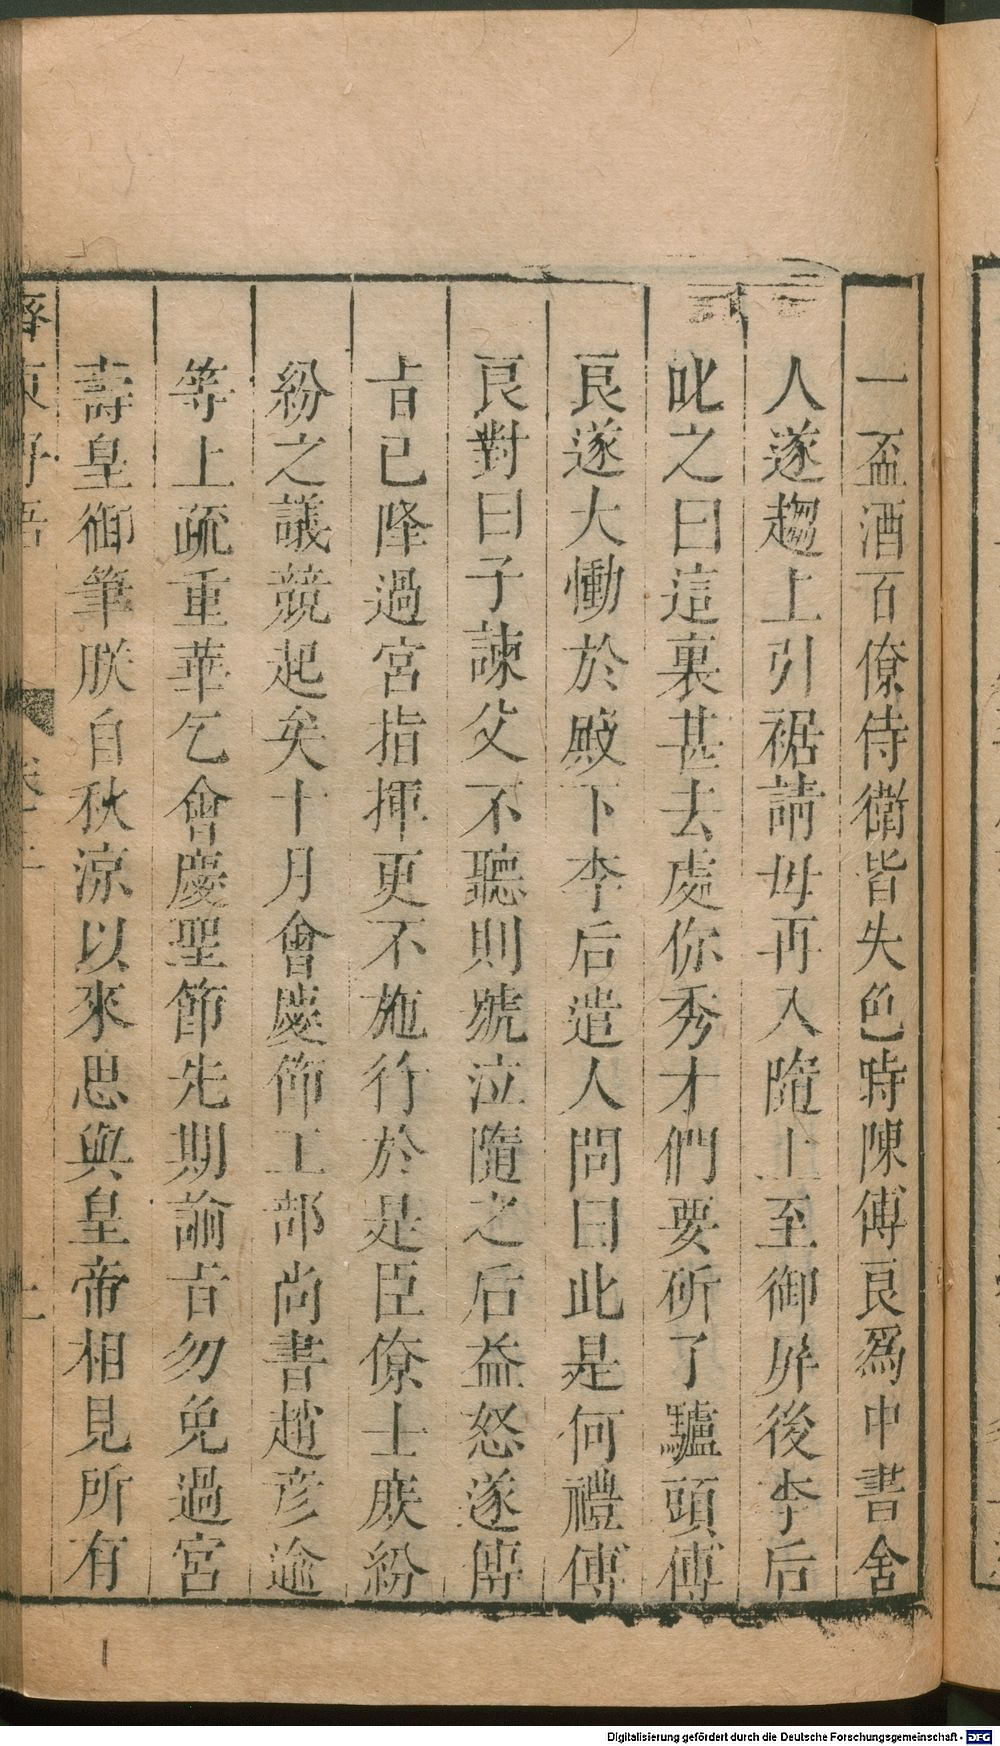 一盃酒百僚侍衛皆失色時陳傅良爲中書舍
人遂趨上引裾請毋再入隨上至御屏後李后
叱之曰這裏甚去處你秀才們要斫了驢頭傅
良遂大慟於殿下李后遣人問曰此是何禮傅
良對曰子諫父不聽則號泣隨之后益怒遂傳
㫖已降過宮指揮更不施行於是臣僚士庶紛
紛之議競起矣十月會慶節工部尚書趙彦逾
等上疏重華乞會慶聖節先期諭㫖勿免過宮
壽皇御筆朕自秋涼以來思與皇帝相見所有
齊東野語
Digitalisierung gefördert durch die Deutsche Forschungsgemeinschaft - DFG